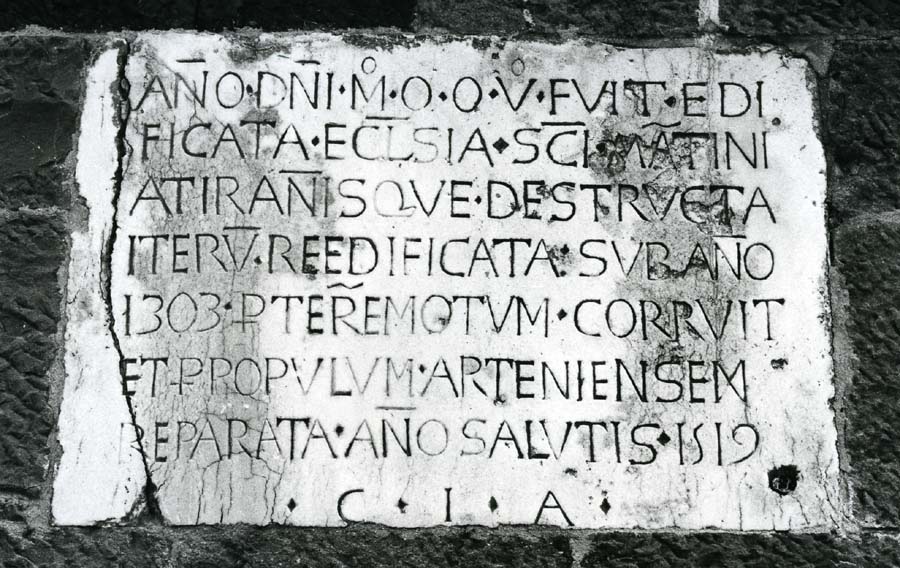 AÑO·DÑI·M̊·O·Q·V̊·FVIT·EDI
FICATA·ECL̄SIA·SC̄I·MATINI
ATIRAÑISQVE·DESTRVCTA
ITERV̄·REEDIFICATA·SVB AÑO
1303·P TERREMOTVM·CORRVIT
ET PROPVLVM·ARTENIENSEM
REPARATA·AÑO SALVTIS·1519
·C·I·A·